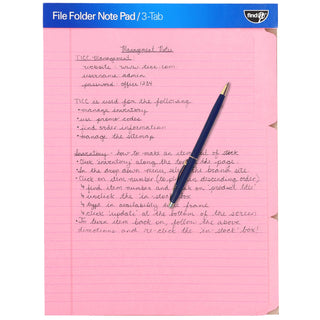 File Folder Note Pad / 3-Tab
find It
Management Notes
TICC Management
website: www.ticc.com
username: admin
password: office1234
TICC is used for the following
• manage inventory
• use promo codes
• find order information
• manage the sitemap
Inventory: how to make an item out of stock
• Click inventory along the top of the page
• In the drop down menu, click the brand site
• Click on item number (to put in descending order)
↳ find item number and click on "product title"
↳ unclick the "in-stock" box
↳ type in availability time frame
↳ click "update" at the bottom of the screen
• To turn item back on, follow the above
directions and re-click the "in stock" box!